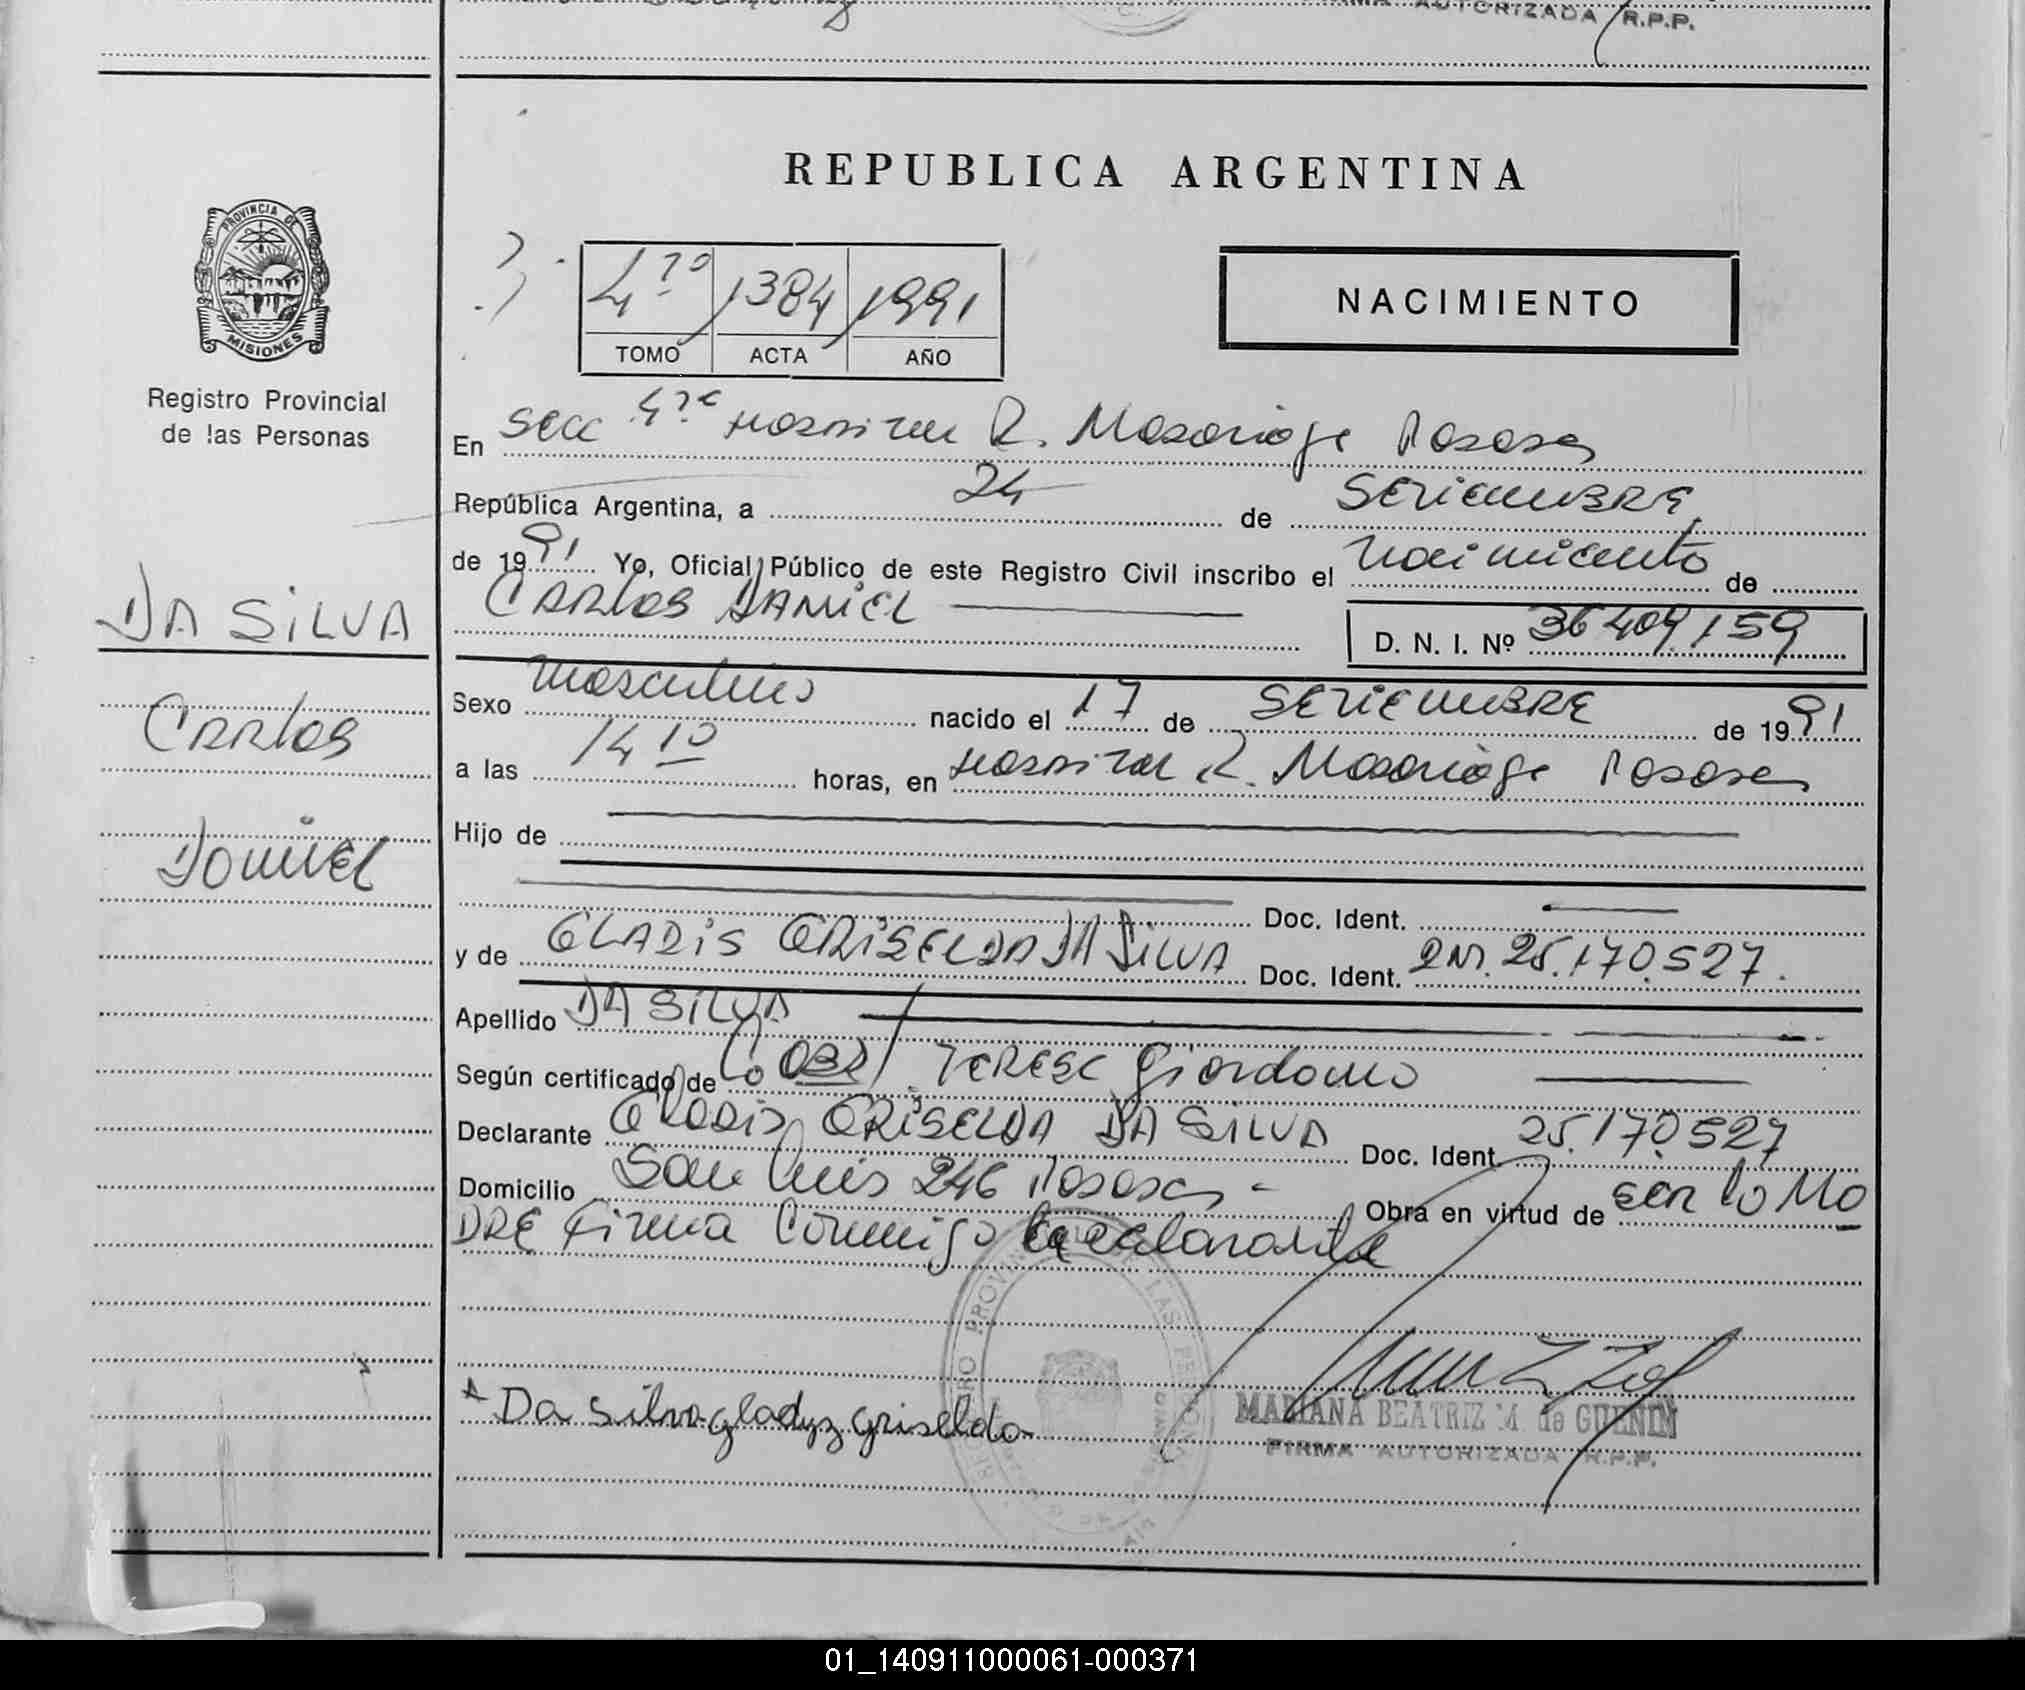 AUTORIZADA R.P.P.
REPUBLICA ARGENTINA
PROVINCIA DE
MISIONES
Registro Provincial
de las Personas
4to 1384 1991
TOMO ACTA AÑO
NACIMIENTO
En Secc 4ta Hospital R. Madariaga Posadas
República Argentina, a 24 de SETIEMBRE
de 1991 Yo, Oficial Público de este Registro Civil inscribo el nacimiento de
CARLOS DANIEL D. N. I. Nº 36409159
DA SILVA
CARLOS
DANIEL
Sexo Masculino nacido el 17 de SETIEMBRE de 1991
a las 14 10 horas, en Hospital R. Madariaga Posadas
Hijo de
Doc. Ident.
y de GLADIS GRISELDA DA SILVA Doc. Ident. DNI. 25.170.527.
Apellido DA SILVA
Según certificado de la OBST TERESA Giordano
Declarante GLADIS GRISELDA DA SILVA Doc. Ident. 25.170.527
Domicilio San Luis 246 Posadas - Obra en virtud de SER LA MA
DRE Firma Conmigo La declarante
Da Silva gladyz griselda
MARIANA BEATRIZ M. de GUENIN
FIRMA AUTORIZADA R.P.P.
01_140911000061-000371